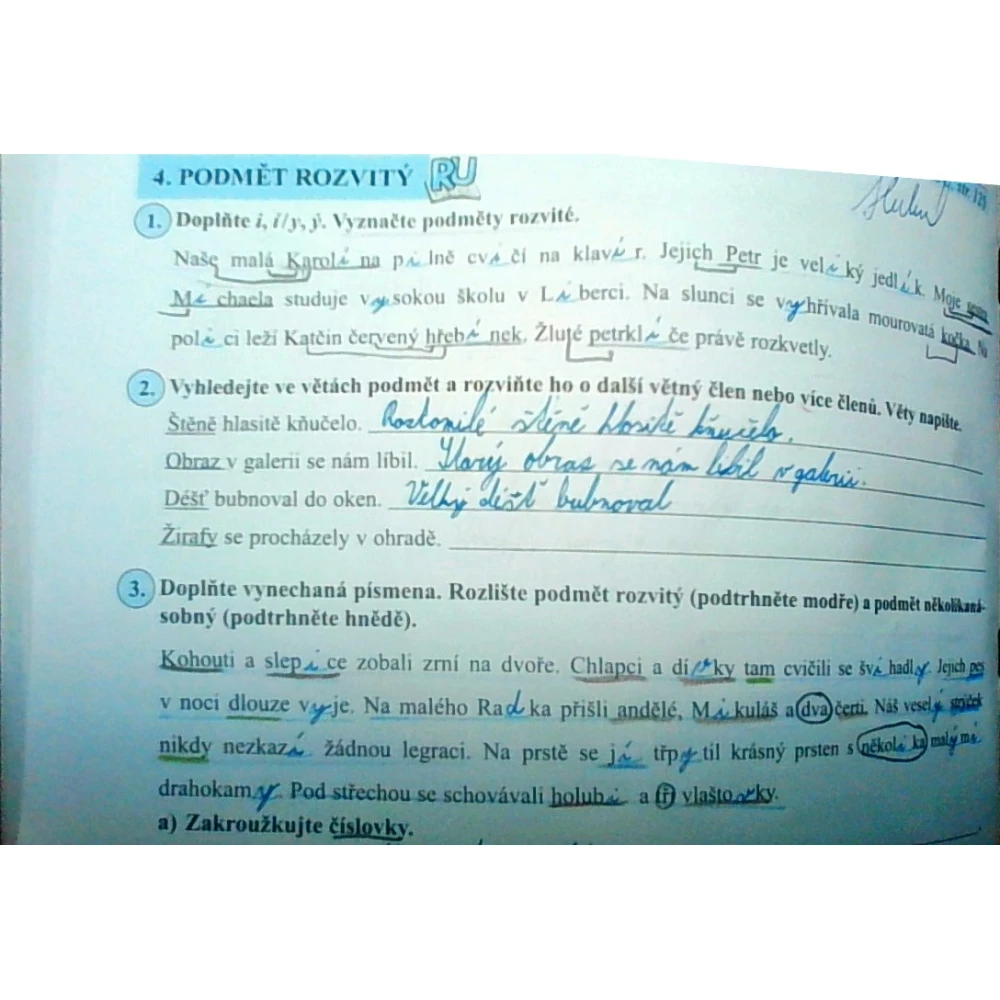 4. PODMĚT ROZVITÝ RU
str. 125
1. Doplňte i, í/y, ý. Vyznačte podměty rozvité.
Naše malá Karolí na pi lně cvi čí na klaví r. Jejich Petr je veli ký jedlí k. Moje
Mi chaela studuje vy sokou školu v Li berci. Na slunci se vy hřívala mourovatá kočka. Na
poli ci leží Katčin červený hřebí nek. Žluté petrklí če právě rozkvetly.
2. Vyhledejte ve větách podmět a rozviňte ho o další větný člen nebo více členů. Věty napište.
Štěně hlasitě kňučelo. Roztomilé štěně hlasitě kňučelo.
Obraz v galerii se nám líbil. Starý obraz se nám líbil v galerii.
Déšť bubnoval do oken. Velký déšť bubnoval
Žirafy se procházely v ohradě.
3. Doplňte vynechaná písmena. Rozlište podmět rozvitý (podtrhněte modře) a podmět několikaná-
sobný (podtrhněte hnědě).
Kohouti a slepi ce zobali zrní na dvoře. Chlapci a dí vky tam cvičili se švi hadly. Jejich pes
v noci dlouze vy je. Na malého Rad ka přišli andělé, Mi kuláš a dva čerti. Náš veselý strýček
nikdy nezkazí žádnou legraci. Na prstě se jí třpy til krásný prsten s několi ka malými
drahokamy. Pod střechou se schovávali holubi a tři vlašto vky.
a) Zakroužkujte číslovky.